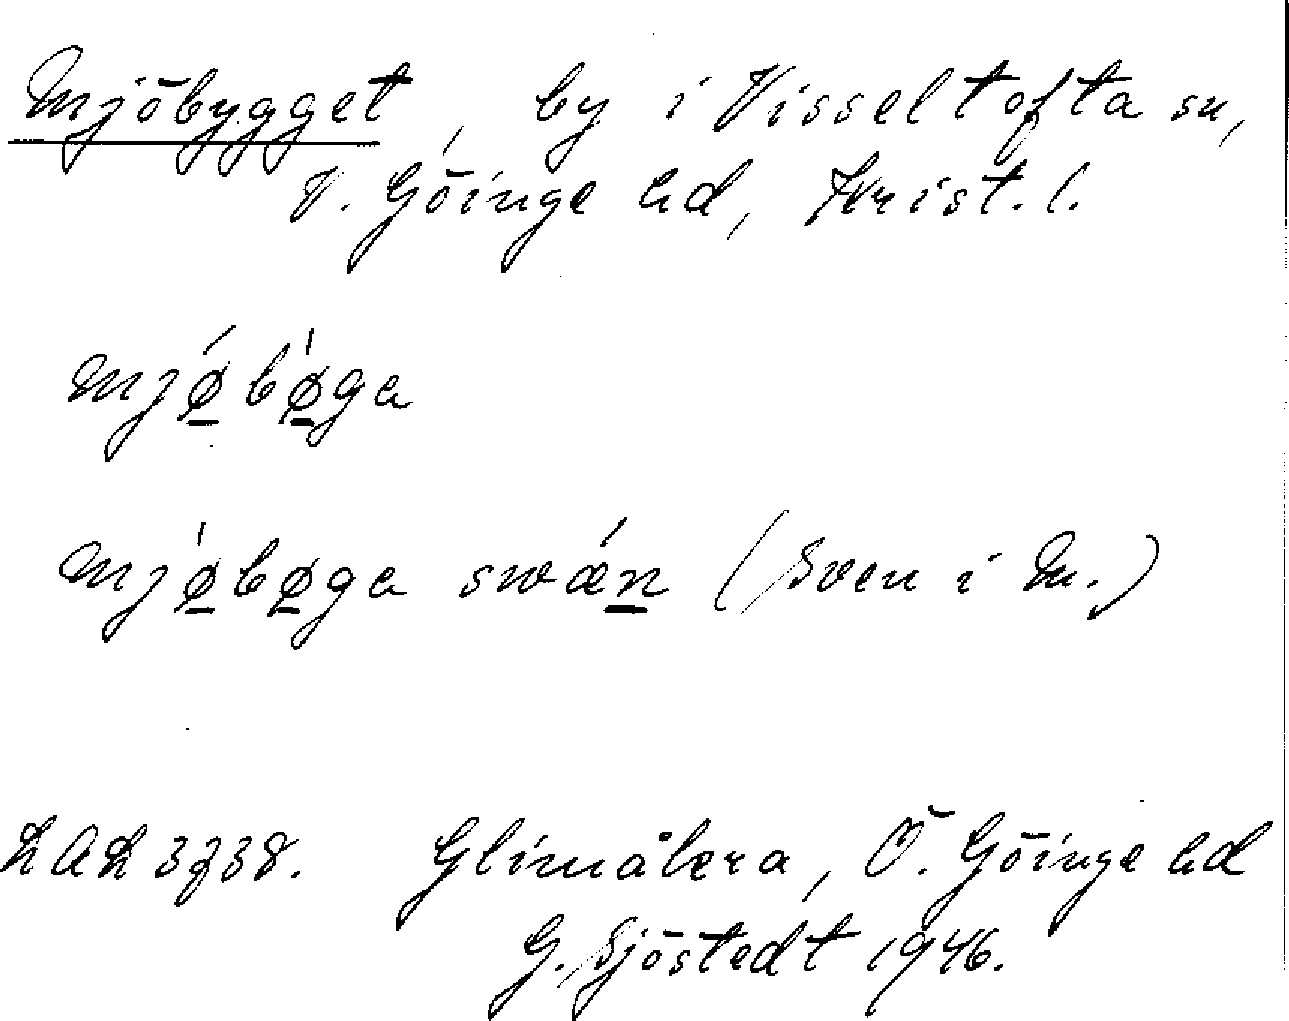 Mjöbygget, by i Visseltofta sn,
V. Göinge hd, Krist. l.
mjǿ̲bø̲̍ga
mjø̲̍bø̲ga swǽn̲ (Sven i M.)
LAL 3738. Glimåkra, Ö. Göinge hd
G. Sjöstedt 1946.